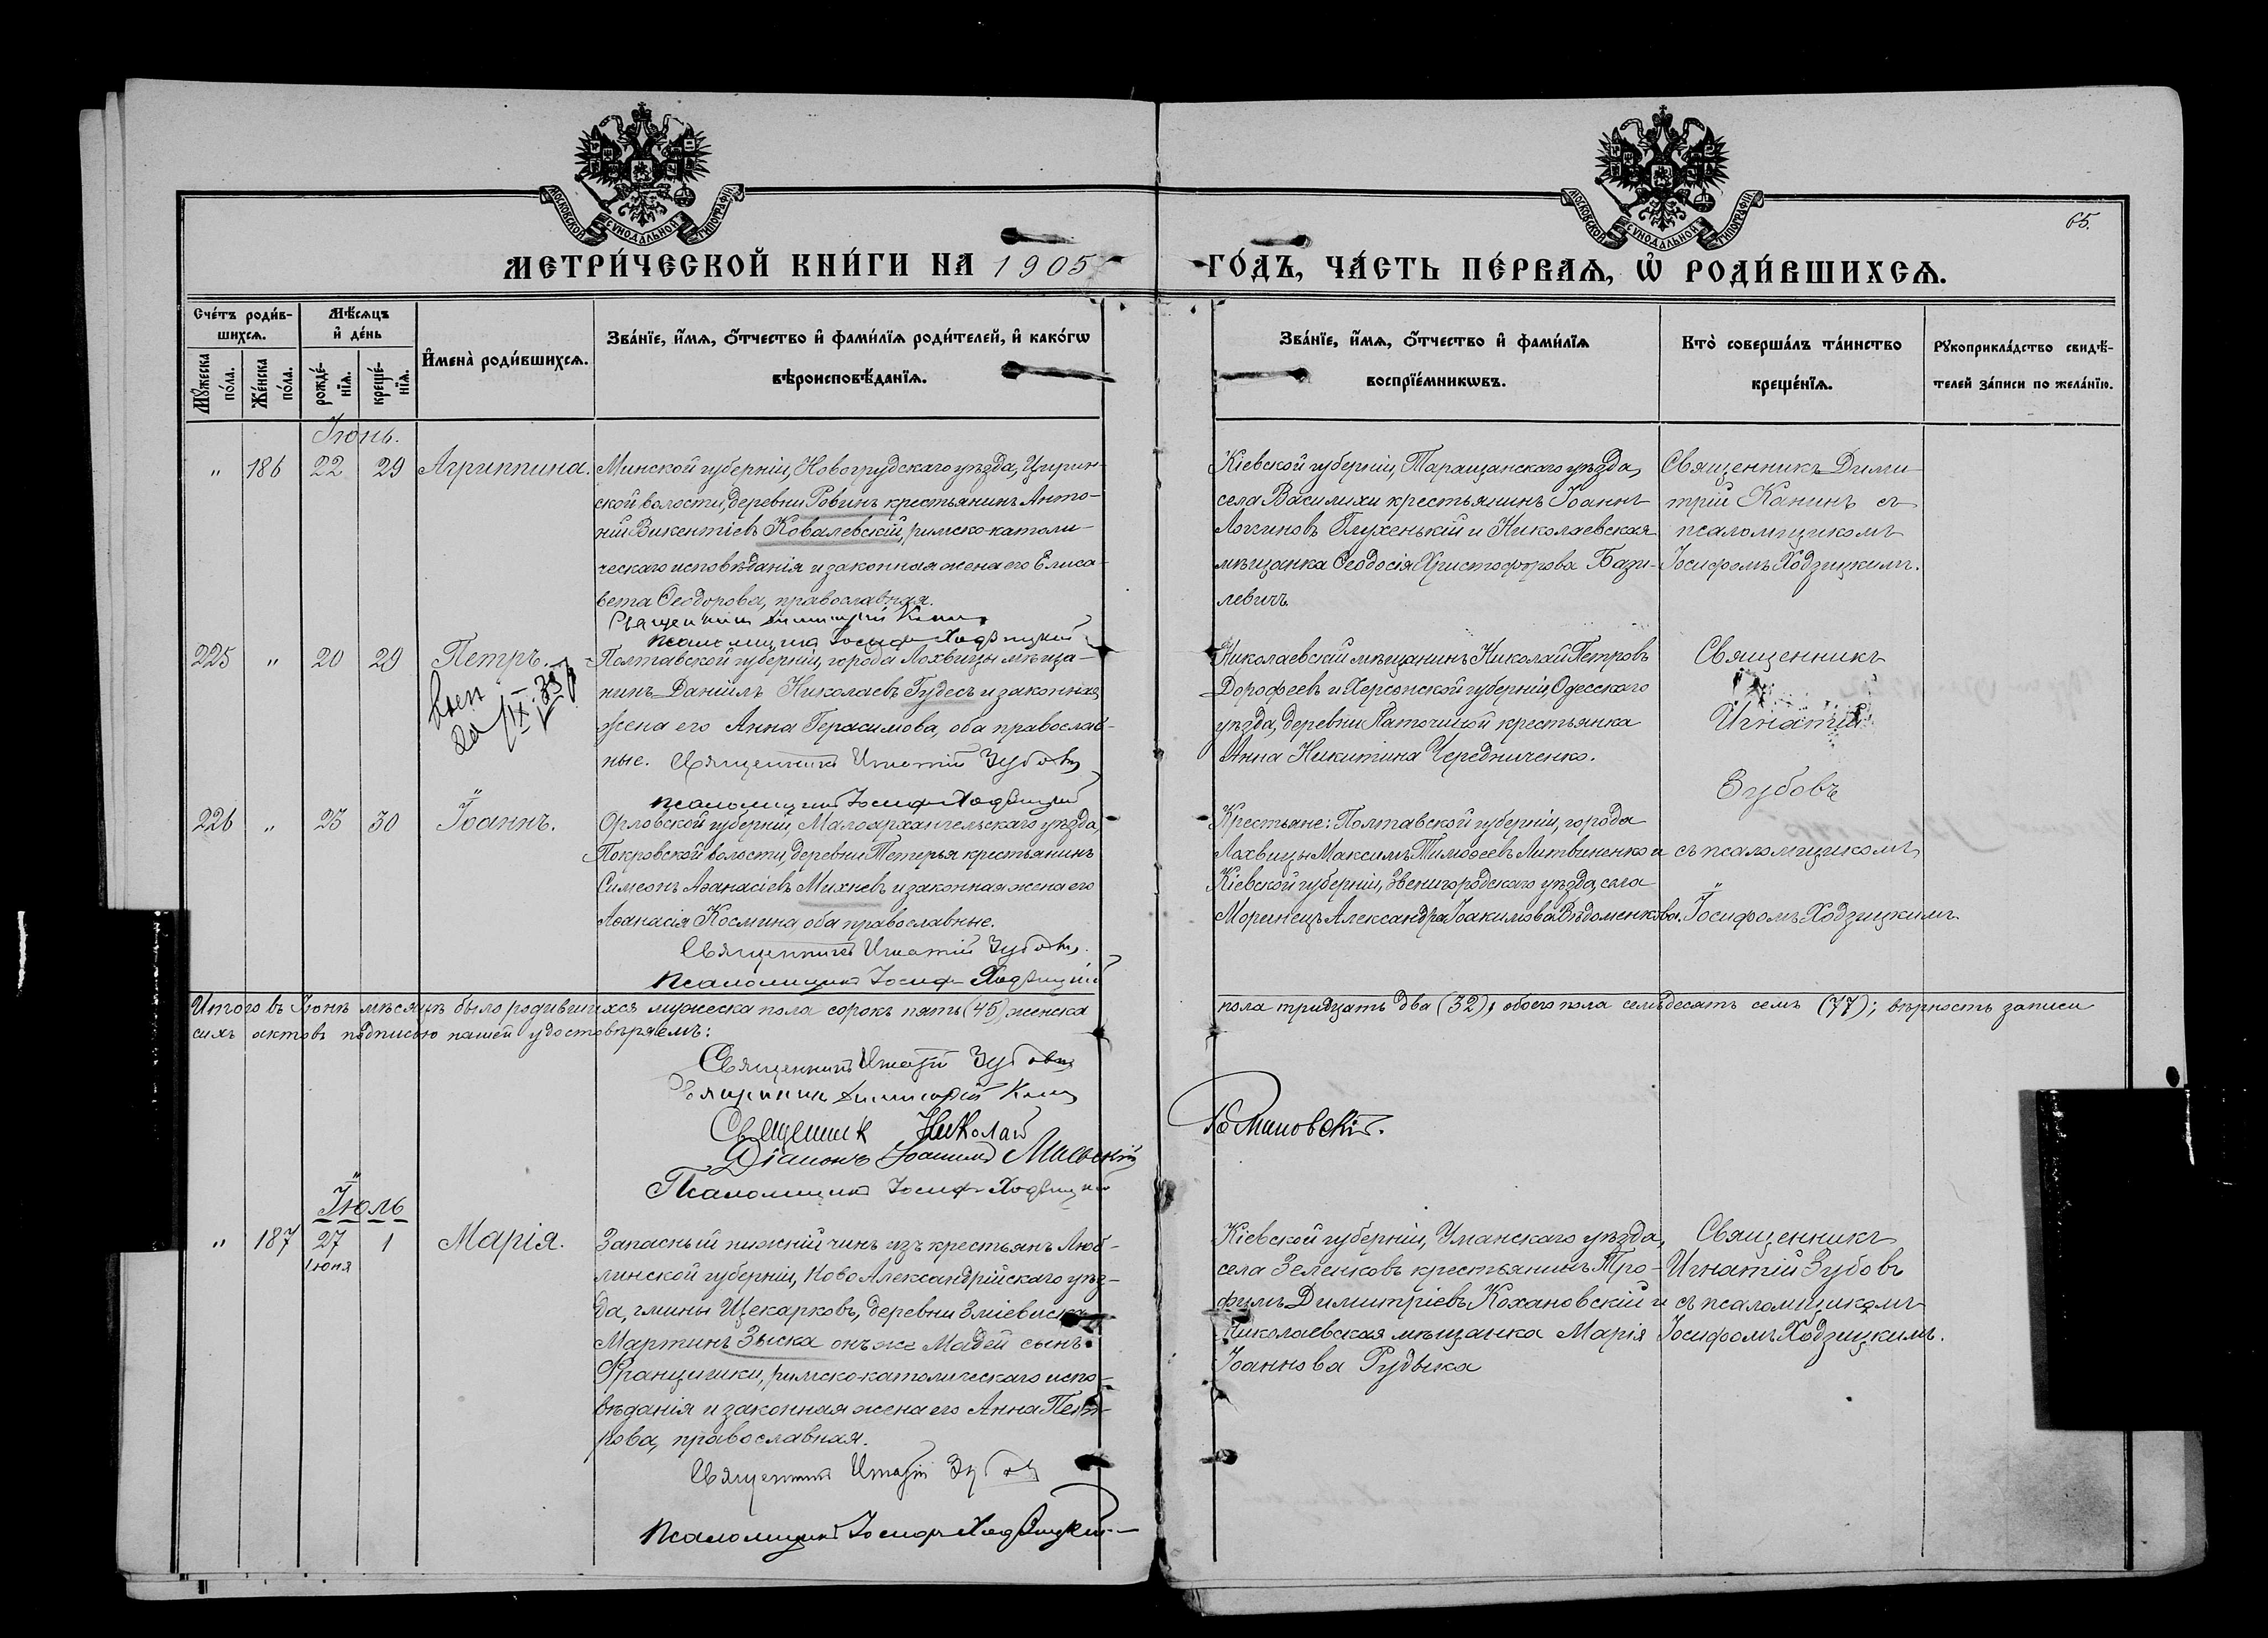 МОСКОВСКОЙ СѴНОДАЛЬНОЙ ТИПОГРАФІИ
МОСКОВСКОЙ СѴНОДАЛЬНОЙ ТИПОГРАФІИ
65.
МЕТРИ́ЧЕСКОЙ КНИ́ГИ НА 1905
ГО́ДЪ, ЧА́СТЬ ПЕ́РВАѦ, Ѡ҆ РОДИ́ВШИХСѦ.
Сче́тъ роди́в-
шихсѧ.
Мꙋ́жеска
по́ла.
Же́нска
по́ла.
Мѣ́сѧцъ
и҆ де́нь
рожде́-
нїѧ.
креще́-
нїѧ.
И҆мена̀ роди́вшихсѧ.
Зва́нїе, и҆́мѧ, ѻ҆́тчество и҆ фами́лїѧ роди́телей, и҆ како́гѡ
вѣроисповѣ́данїѧ.
Зва́нїе, и҆́мѧ, ѻ҆́тчество и҆ фами́лїѧ
воспрїе́мникѡвъ.
Кто̀ соверша́лъ та́инство
креще́нїѧ.
Рꙋкоприкла́дство свидѣ́-
телей за́писи по жела́нїю.
Іюнь.
" 186 22 29 Агриппина.
Минской губерніи, Новогрудскаго уѣзда, Цирин-
ской волости, деревни Ровинъ крестьянинъ Анто-
ній Викентіевъ Ковалевскій, римско-католи-
ческаго исповѣданія и законная жена его Елиса-
вета Ѳеодорова, православная.
Священникъ Димитрій Канинъ
Псаломщикъ Іосифъ Ходзицкій
Кіевской губерніи, Таращанскаго уѣзда,
села Василихи крестьянинъ Іоаннъ
Логгиновъ Глухенькій и Николаевская
мѣщанка Ѳеодосія Христофорова Бази-
левичъ
Священникъ Дими-
трій Канинъ съ
псаломщикомъ
Іосифомъ Ходзицкимъ.
225 " 20 29 Петръ.
Полтавской губерніи, города Лохвицы мѣща-
нинъ Даніилъ Николаевъ Гудесъ и законная
жена его Анна Герасимова, оба православ-
ные. Священникъ Игнатій Зубовъ
Псаломщикъ Іосифъ Ходзицкій
Николаевскій мѣщанинъ Николай Петровъ
Дорофеевъ и Херсонской губерніи, Одесскаго
уѣзда, деревни крестьянка
Анна Никитина Чередниченко.
Священникъ
Игнатій
Зубовъ
226 " 23 30 Іоаннъ.
Орловской губерніи, Малоархангельскаго уѣзда,
Покровской волости, деревни Тетерья крестьянинъ
Симеонъ Аѳанасіевъ Михневъ и законная жена его
Аѳанасія Космина, оба православные.
Священникъ Игнатій Зубовъ.
Псаломщикъ Іосифъ Ходзицкій
Крестьяне: Полтавской губерніи, города
Лохвицы Максимъ Тимоѳеевъ Литвиненко и
Кіевской губерніи, Звенигородскаго уѣзда, села
Моринецъ Александра Іоакимова Вѣдоменкова.
съ псаломщикомъ
Іосифомъ Ходзицкимъ
Итого въ Іюнѣ мѣсяцѣ было родившихся мужеска пола сорокъ пять (45), женска
пола тридцать два (32), обоего пола семьдесятъ семь (77); вѣрность записи
сихъ актовъ подписью нашей удостовѣряемъ:
Священникъ Игнатій Зубовъ
Священникъ Димитрій Канинъ
Священник Николай Романовскій.
Діаконъ Іоаннъ
Псаломщикъ Іосифъ Ходзицкій
Іюль
" 187 27 1 Марія.
Іюня
Запасный нижній чинъ изъ крестьянъ Люб-
линской губерніи, Ново Александрійскаго уѣз-
да, гмины Щекарковъ, деревни
Мартинъ Зыска онъ же Мадей сынъ
Францишки, римско-католическаго испо-
вѣданія и законная жена его Анна Пет-
рова, православная.
Священникъ Игнатій Зубовъ
Псаломщикъ Іосифъ Ходзицкій
Кіевской губерніи, Уманскаго уѣзда,
села Зеленковъ крестьянинъ Тро-
фимъ Димитріевъ Кохановскій и
Николаевская мѣщанка Марія
Іоаннова Рудыка
Священникъ
Игнатій Зубовъ
съ псаломщикомъ
Іосифомъ Ходзицкимъ.